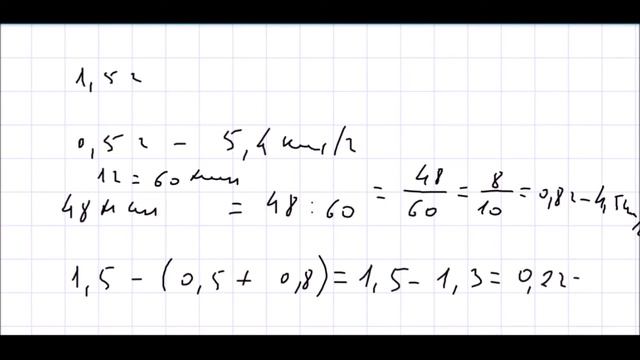 1,5 ч
0,5 ч - 5,4 км/ч
1ч = 60 мин
48 мин = 48 : 60 = 48/60 = 8/10 = 0,8ч -
1,5 - (0,5 + 0,8) = 1,5 - 1,3 = 0,2ч -